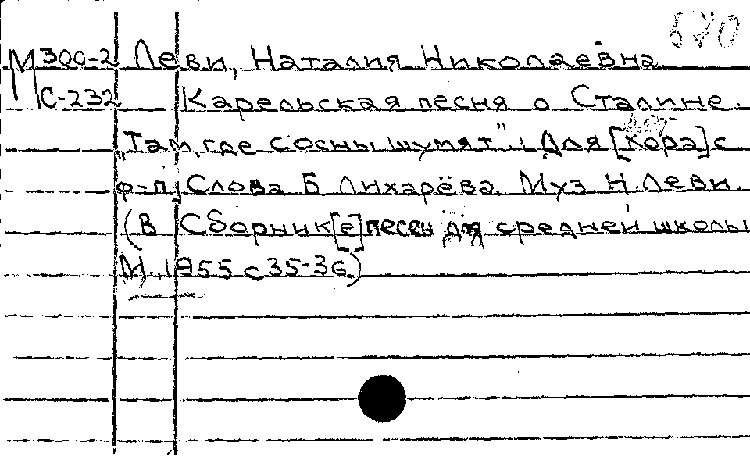 680
М 300-2 Леви, Наталия Николаевна
С-232 Карельская песня о Сталине.
„Там, где сосны шумят". Для [хора] с
ф-п. Слова Б Лихарёва. Муз Н. Леви.
(В Сборник[е] песен для средней школы
М., 1955 с 35-36.)